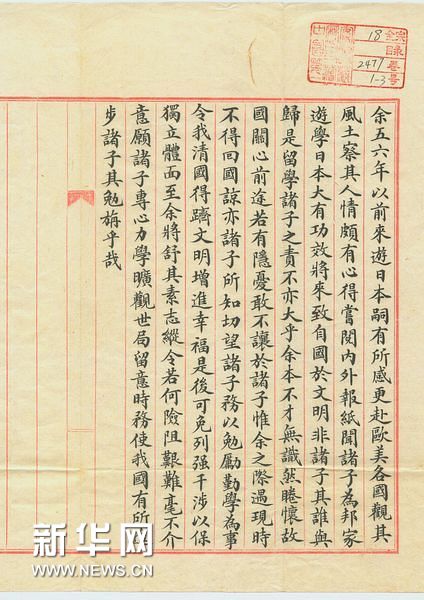 余五六年以前來遊日本嗣有所感更赴歐美各國觀其
風土察其人情頗有心得嘗閱內外報紙聞諸子為邦家
遊學日本大有功效將來致自國於文明非諸子其誰與
歸是留學諸子之責不亦大乎余本不才無識然睠懷故
國關心前途若有隱憂敢不讓於諸子惟余之際遇現時
不得回國諒亦諸子所知切望諸子務以勉勵勤學為事
令我清國得躋文明增進幸福是後可免列强干涉以保
獨立體面至余將舒其素志縱令若何險阻艱難毫不介
意願諸子專心力學曠觀世局留意時務使我國有所
步諸子其勉旃乎哉
全宗
目录 18
卷 247
号 1-3
新华网
WWW.NEWS.CN